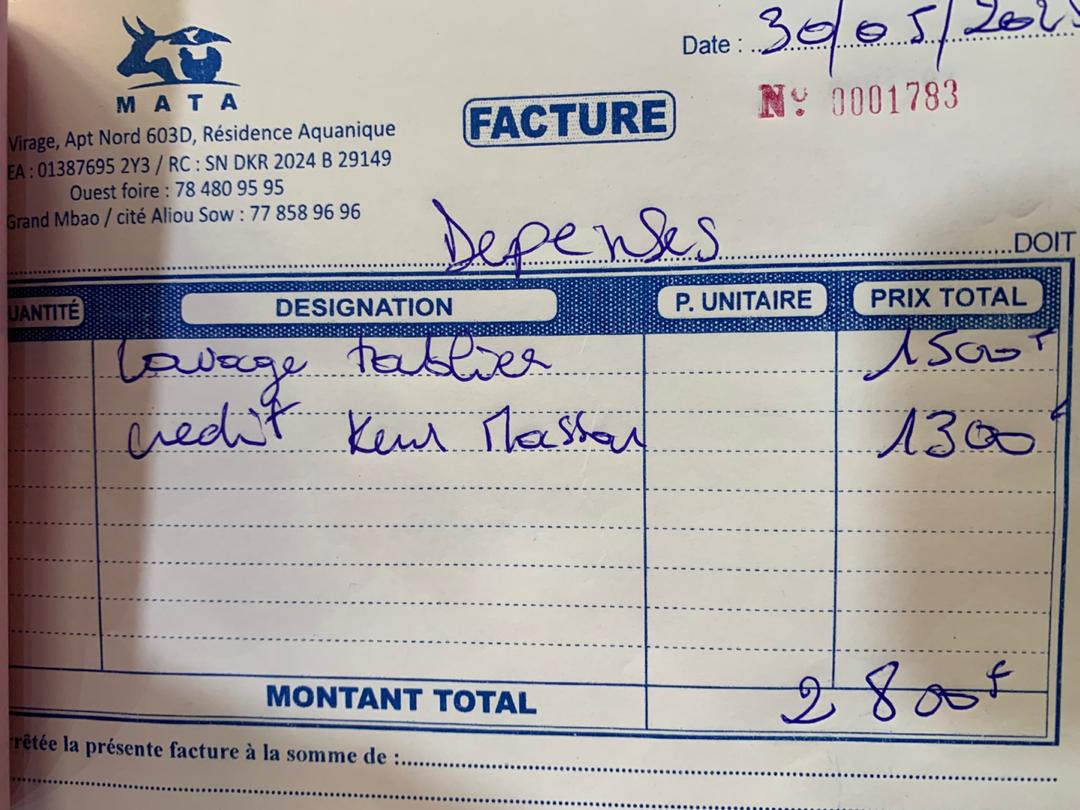 MATA
Date : 30/05/202
FACTURE
Nº 0001783
Virage, Apt Nord 603D, Résidence Aquanique
EA : 01387695 2Y3 / RC : SN DKR 2024 B 29149
Ouest foire : 78 480 95 95
Grand Mbao / cité Aliou Sow : 77 858 96 96
Depenses DOIT
UANTITÉ DESIGNATION P. UNITAIRE PRIX TOTAL
Lavage tablier 1500 F
credit Keur Massar 1300
MONTANT TOTAL 2 800 F
rrêtée la présente facture à la somme de :